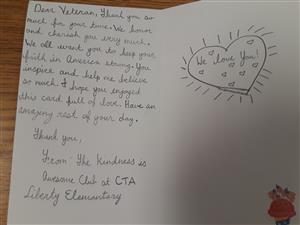 Dear Veteran, Thank you so
much for your time. We honor
and cherish you very much.
We all want you to keep your
faith in America strong. You
inspire and help me believe
so much. I hope you enjoyed
this card full of love. Have an
amazing rest of your day.
Thank you,
From: The Kindness is
Awesome Club at CTA
Liberty Elementary
We love You!